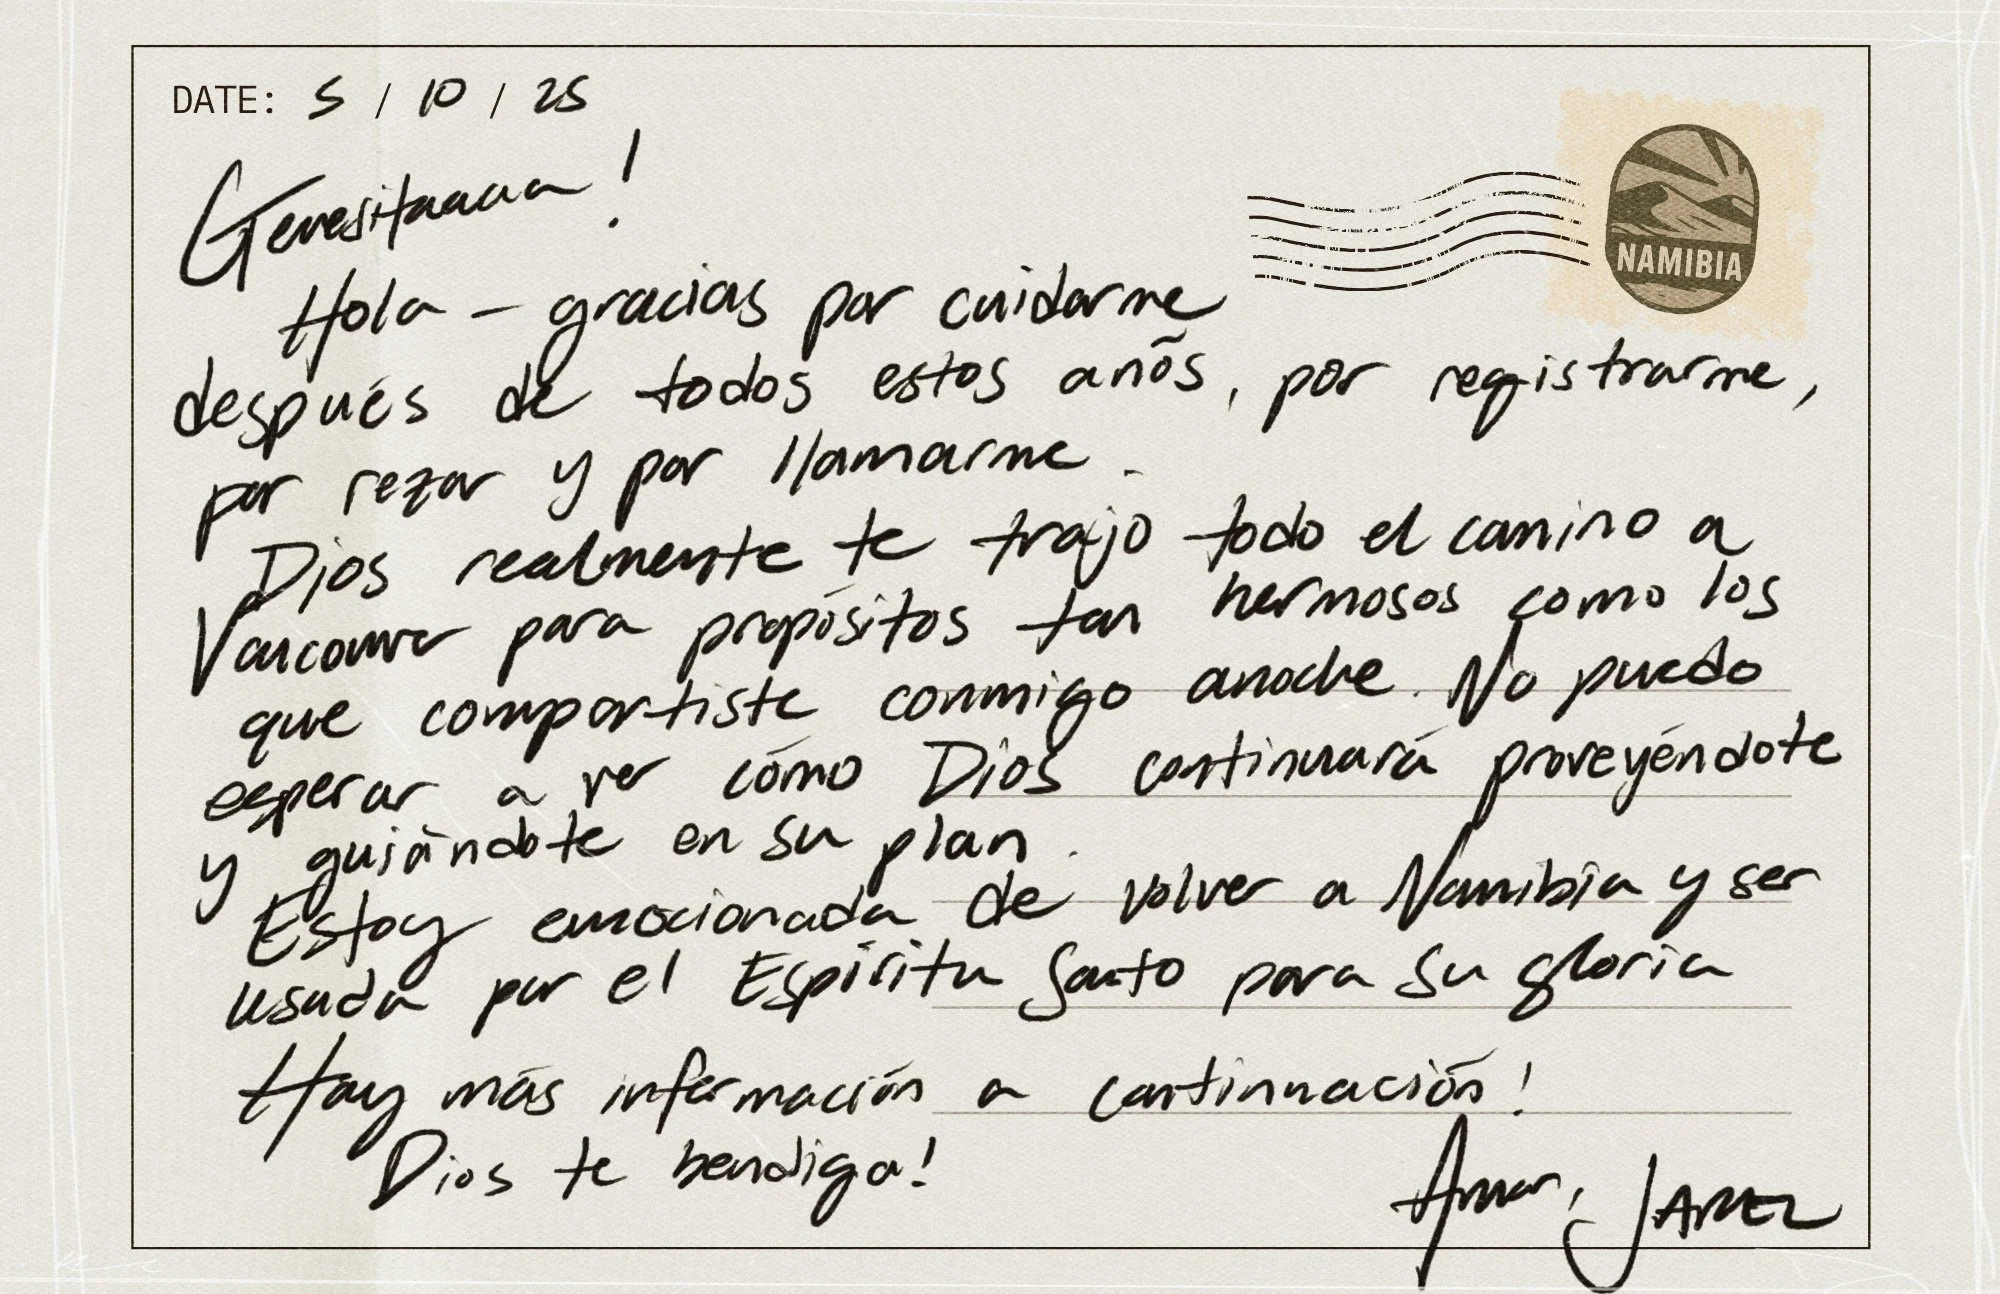 DATE: 5 / 10 / 25
NAMIBIA
Genesitaaaa!
Hola - gracias por cuidarme
después de todos estos anõs, por registrarme,
por rezar y por llamarme.
Dios realmente te trajo todo el camino a
Vancouver para propósitos tan hermosos como los
que compartiste conmigo anoche. No puedo
esperar a ver cómo Dios continuará proveyéndote
y guiándote en su plan.
Estoy emocionada de volver a Namibia y ser
usada por el Espíritu Santo para su gloria
Hay más información a continuación!
Dios te bendiga!
Amor,